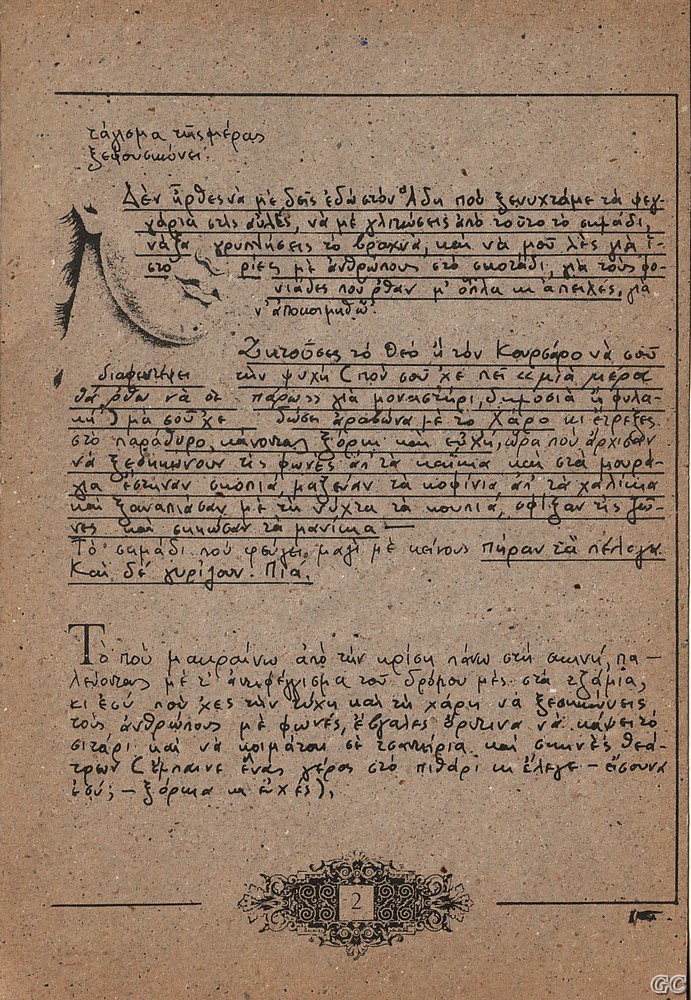 τάγισμα τῆς μέρας
ξεφουσκώνει.
Δὲν ἦρθες νὰ μὲ δεῖς ἐδῶ στὸν Ἅδη ποὺ ξενυχτᾶμε τὰ φεγ-
γάρια στὶς αὐλές, νὰ μὲ γλιτώσεις ἀπὸ τοῦτο τὸ σημάδι,
νὰ ξα γρυπνήσεις τὸ βραχνά, καὶ νὰ μοῦ λὲς γιὰ ἱ-
στο ρίες μὲ ἀνθρώπους στὸ σκοτάδι, γιὰ τοὺς φο-
νιάδες ποὺ ρθαν μ' ὅπλα κι ἀπειλές, γιὰ
ν' ἀποκοιμηθῶ.
Ζητοῦσες τὸ Θεὸ ἢ τὸν Κουρσάρο νὰ σοῦ
διαφεντέψει τὴν ψυχὴ (ποὺ σοῦ χε πεῖ «μιὰ μέρα
θὰ ρθω νὰ σὲ πάρω») γιὰ μοναστήρι, δημοσιὰ ἢ φυλα-
κή) μὰ σοῦ χε δώσει ἀραβώνα μὲ τὸ Χάρο κι ἔτρεξες
στὸ παράθυρο, κάνοντας ξόρκι καὶ εὐχή, ὥρα ποὺ ἄρχισαν
νὰ ξεσηκώνουν τὶς φωνὲς ἀπ' τὰ καΐκια καὶ στὰ μουρά-
για ἔστηναν σκοπιά, μάζευαν τὰ κοφίνια ἀπ' τὰ χαλίκια
καὶ ξανάπιασαν μὲ τὴ νύχτα τὰ κουπιά, σφίξαν τὶς ζῶ-
νες καὶ σήκωσαν τὰ μανίκια —
Τὸ σημάδι ποὺ φεύγει μαζὶ μὲ κείνους πῆραν τὰ πέλαγα.
Καὶ δὲ γυρίζουν. Πιά.
Τὸ ποὺ μακραίνω ἀπὸ τὴν κρίση πάνω στὴ σκηνή, πα-
λεύοντας μὲ τ' ἀντιφέγγισμα τοῦ δρόμου μὲς στὰ τζάμια,
κι ἐσὺ ποὺ χες τὴν τύχη καὶ τὴ χάρη νὰ ξεσηκώνεις
τοὺς ἀνθρώπους μὲ φωνές, ἔβγαλες ὀρντινα νὰ κάψει τὸ
σιτάρι καὶ νὰ κοιμᾶται σὲ τσαντίρια καὶ σκηνὲς θεά-
τρων (ἔμπαινε ἕνας γέρος στὸ πιθάρι κι ἔλεγε — εἴσουνα
ἐσύ; — ξόρκια κι εὐχές),
2
GC